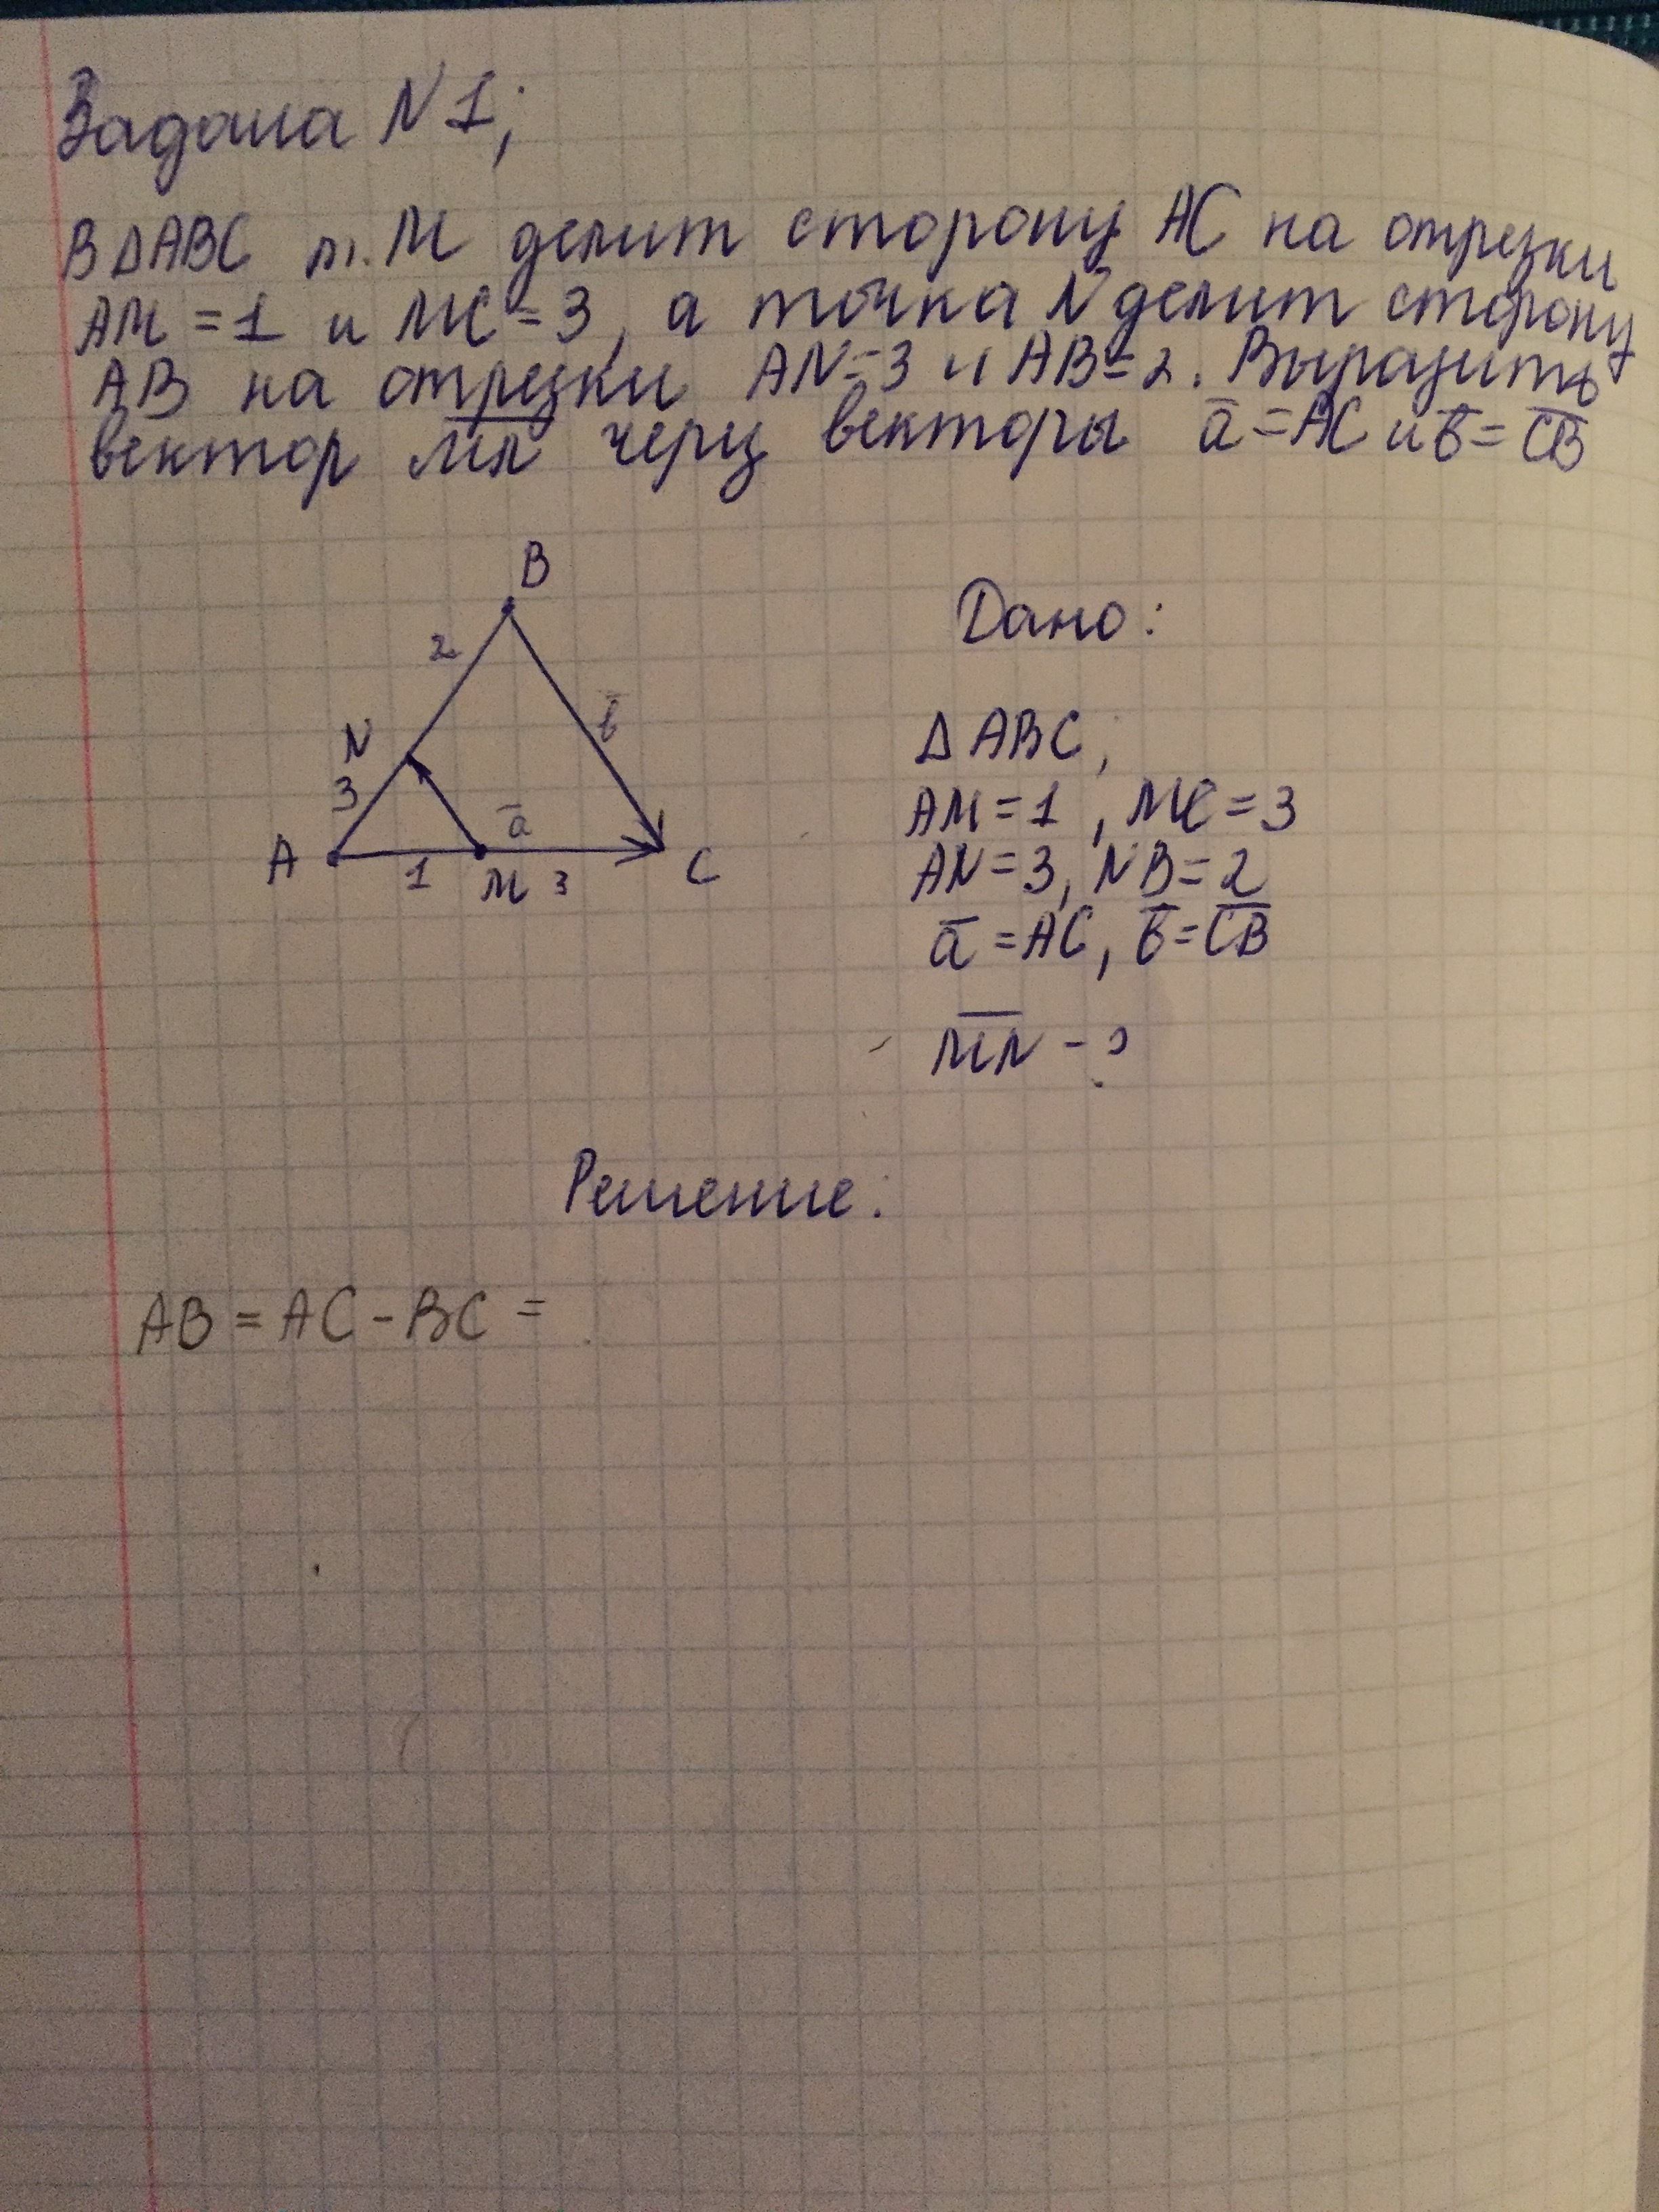 Задача N1;
В ΔABC т. M делит сторону AC на отрезки
AM = 1 и MC = 3, а точка N делит сторону
AB на отрезки AN=3 и AB=2. Выразить
вектор M̅N̅ через векторы a̅=AC и в̅=C̅B̅
B
2
в̅
N
3
a̅
A
1
M
3
C
Дано:
Δ ABC;
AM = 1, MC = 3
AN = 3, NB = 2
a̅ = AC, в̅ = C̅B̅
M̅N̅ - ?
Решение:
AB = AC - BC =